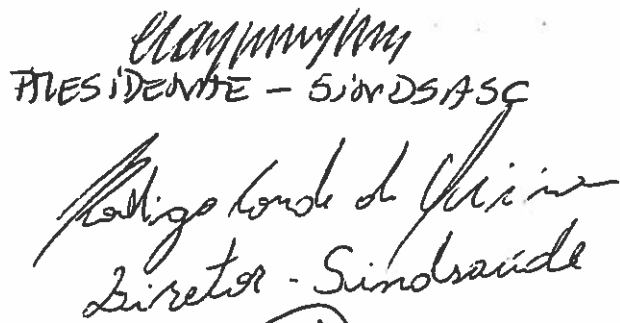 PRESIDENTE - SINDSASC
Rodrigo Conde de
Diretor - Sindsaúde